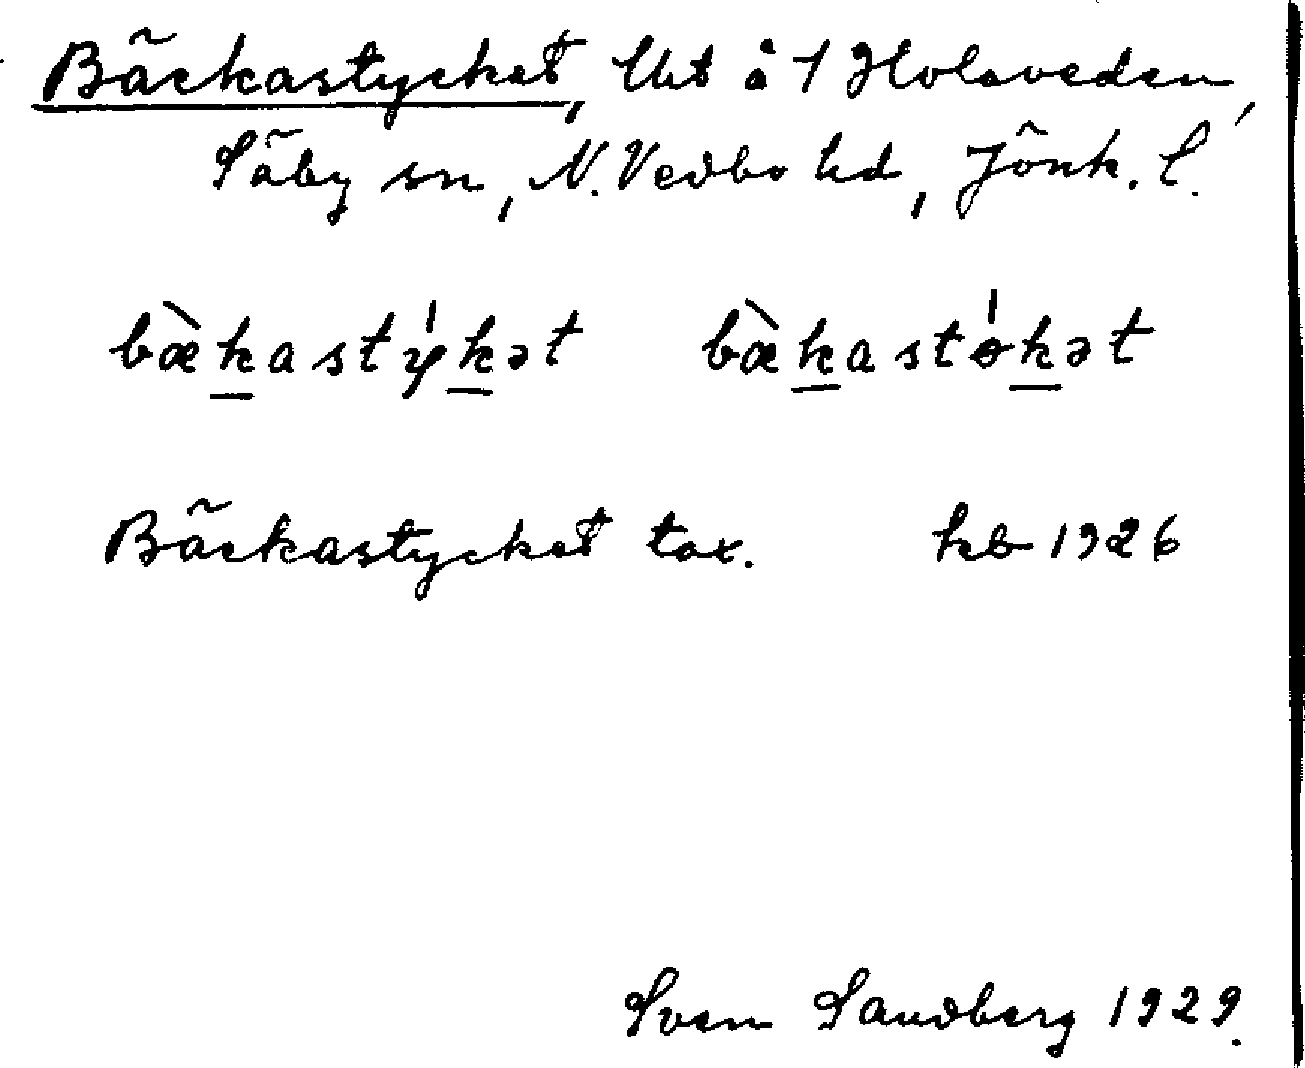 Bäckastycket, lht å 1 Holaveden,
Säby sn, N. Vedbo hd, Jönk. l.
bæ̀ḵastýḵət bæ̀ḵastǿḵət
Bäckastycket tax. kb 1926
Sven Sandberg 1929.